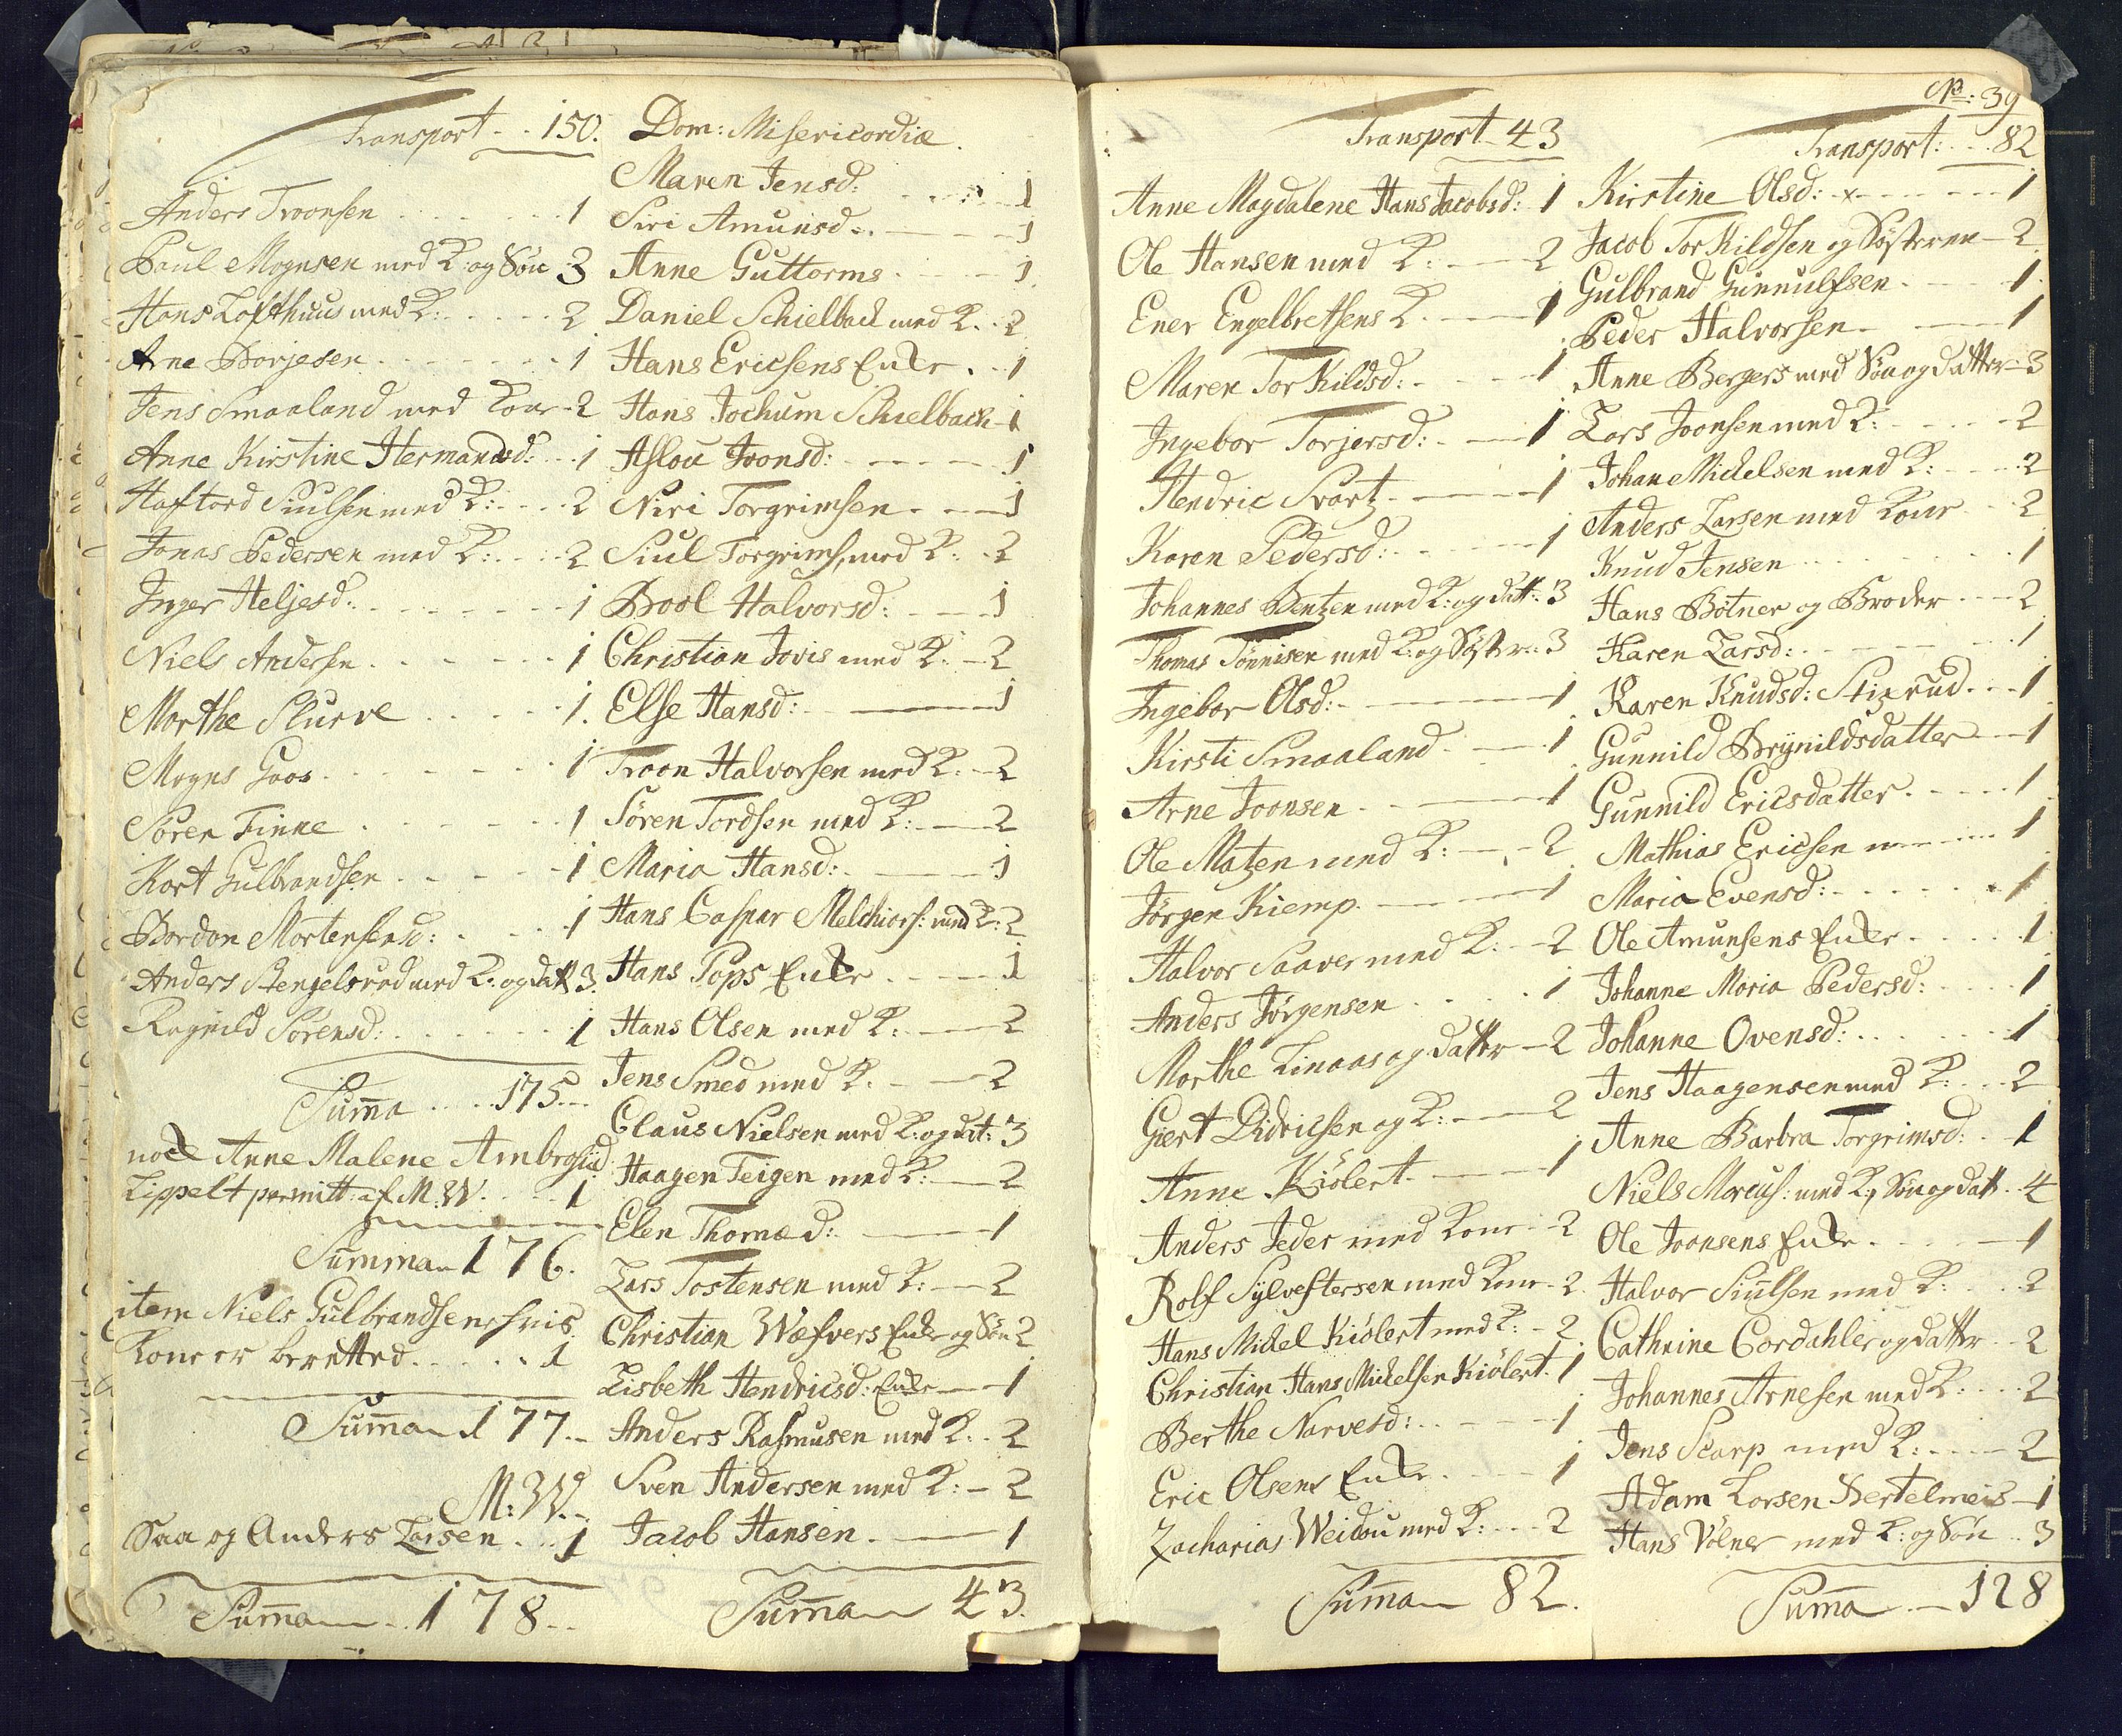 Transport - - 150.
Anders Troonsen - - - 1
Paul Mognsen med K: og Søn 3
Hans Lofthuus med K: - - - 2
Arne Borjesen - - - 1
Jens Smaaland med Kone - 2
Anne Kirstine Hermandsd: - - 1
Haftord Siulsen med K: - - - 2
Jonas Pedersen med K: - - - 2
Inger Heljesd: - - - 1
Niels Andersen - - - 1
Morthe Slurve - - - 1.
Mogns Goos - - - 1
Søren Finne - - - 1
Kort Gulbrandsen - - - 1
Bordon Mortensensd: - - - 1
Anders Stengelsrud med K: og datt 3.
Ragnild Sørensd: - - - 1
Summa - - - 175 - -
nock Anne Malene Ambrosiid
Lippelt permitt: af M: W - - - 1
Summa 176.
item Niels Gulbrandsens
Kone er beretted - - - 1
Summa 177 - -
M: W. -
Saa og Anders Larsen - - 1
Summa - - 178 - -
Dom: Misericordiæ.
Maren Jensd: - - - 1
Siri Amunsd - - - 1
Anne Guttorms - - - 1
Daniel Schielbach med K - - 2
Hans Ericsens Enke - - 1
Hans Jochum Schielbach - 1
Aslou Joonsd: - - - 1
Niri Torgrimsen - - - 1
Siul Torgrims: med K: - 2
Bool Halvorsd: - - - 1
Christian Jovis med K: - 2
Else Hansd: - - - 1
Troon Halvorsen med K: - 2
Sören Tordsen med K: - - 2
Maria Hansd: - - - 1
Hans Casper Melchiors: med K: 2
Hans Pops Enke - - - 1
Hans Olsen med K: - - - 2
Jens Smed med K: - - - 2
Claus Nielsen med K: og dat: 3
Haagen Teigen med K: - - 2
Elen Thomæd: - - - 1
Lars Tostensen med K: - - 2
Christian Wæfvers Enke og Søn 2
Lisbeth Hendricsd: Enke - - 1
Anders Rasmusen med K: - - 2
Sven Andersen med K: - 2
Jacob Hansen - - - 1
Summa 43.
No: 39
Transport - 43
Anne Magdalene Hans Jacobsd: 1
Ole Hansen med K: - - - 2
Ener Engelbretsens K - - - 1
Maren Torkildsd: - - - 1
Ingebor Torjersd: - - - 1
Hendric Svartz - - - 1
Karen Pedersd: - - - 1
Johannes Bentzen med K: og datt: 3
Thomas Tönnisen med K: og Søster: 3
Ingebor Olsd: - - - 1
Kirsti Smaaland - - - 1
Arne Joonsen - - - 1
Ole Matzen med K: - - - 2
Jörgen Kiemp. - - - 1
Halvor Saaver med K: - - 2
Anders Jörgensen - - - 1
Morthe Linaas og datter - 2
Giert Didricsen og K: - - - 2
Anne Kiölert - - - 1
Anders Feder med Kone - - 2
Rolf Sylvestersen med Kone - 2.
Hans Michel Kiölert med K: - 2
Christian Hans Michelsen Kiölert - 1
Berthe Narvesd: - - - 1
Eric Olsens Enke - - - 1
Zacharias Weidou med K: - - - 2
Summa 82.
Transport: - - - 82
Kirstine Olsd: x - - - 1
Jacob Torkildsen og Søsteren - 2
Gulbrand Gunnulfsen - - - 1.
Peder Halvorsen - - - 1
Anne Bergers med Søn og datter - 3
Lars Joonsen med K: - - - 2
Johan Michelsen med K: - - - 2
Anders Larsen med Kone - - 2
Knud Jensen - - - 1
Hans Bötner og Broder - - - 2
Karen Larsd: - - - 1
Karen Knudsd: Stixrud - - - 1
Gunnild Brynildsdatter - - 1
Gunnild Ericsdatter - - - 1
Mathias Ericsen - - - 1
Maria Evensd: - - - 1
Ole Amunsens Enke - - - 1
Johanne Maria Pedersd: - - - 1
Johanne Ovensd: - - - 1
Jens Haagensen med K: - - - 2
Anne Barbra Torgrimsd: - - 1
Niels Marcus: med K, Søn og datt - - 4
Ole Joonsens Enke - - - 1
Halvor Siulsen med K: - - - 2
Cathrine Cordahler og datter - - 2
Johannes Arnesen med K: - - - 2
Jens Scarp med K: - - - 2
Adam Lorsen Bertelmeis - 1
Hans Völner med K: og Søn - - 3
Summa - 128